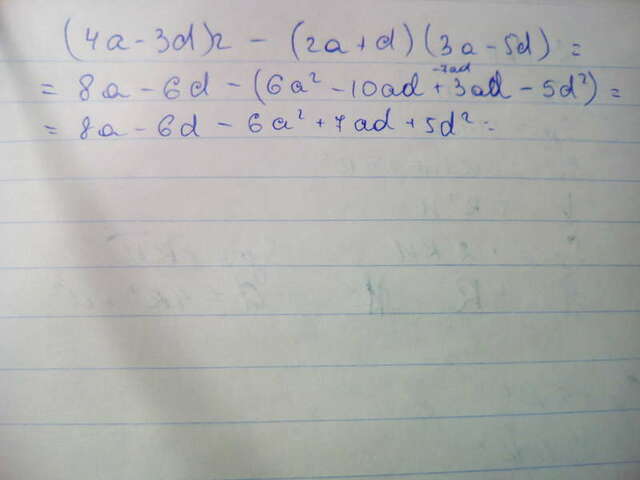 (4a - 3d)2 - (2a + d)(3a - 5d) =
= 8a - 6d - (6a² - 10ad + 3ad - 5d²) =
-7ad
= 8a - 6d - 6a² + 7ad + 5d² =